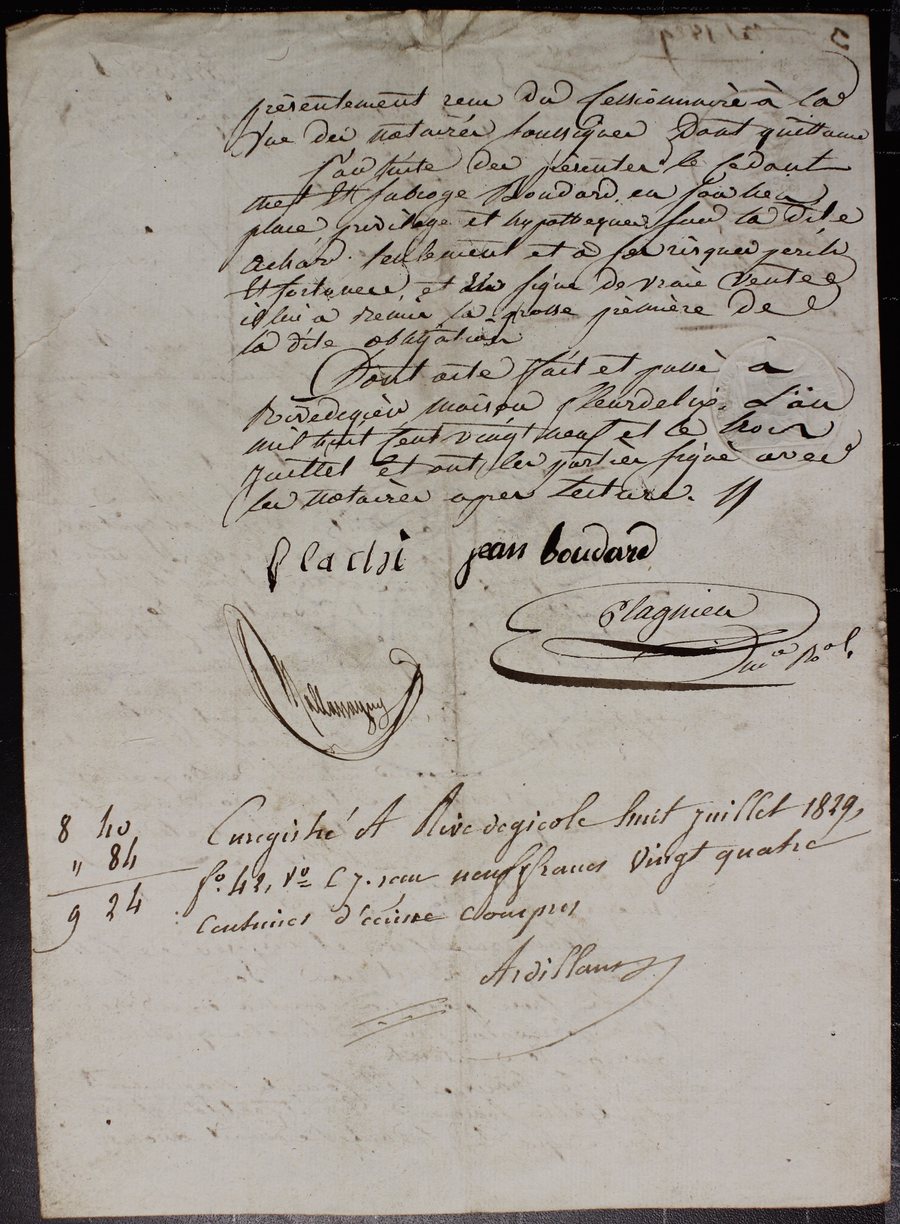 présentement reçu du cessionnaire à la
vue des notaires soussignés Dont quittance
Par suite des présentes le cédant
met et subroge Boudard en son lieu
place privilège et hypothèques sur la dite
achard seulement et à ses risques périls
et fortunes et en signe de vraie vente
il lui a remis la grosse première de
la dite obligation
Dont acte fait et passé à
Rivedegier maison fleurdelix. L'an
mil huit cent vingt neuf et le trois
juillet et ont les parties signé avec
les notaires après lecture.
Plachi jean boudard
Plagnieu
8 40
" 84
9 24
Enregistré A Rive degier le huit juillet 1829,
fo. 42, vo C 7. reçu neuf francs vingt quatre
centimes décime compris